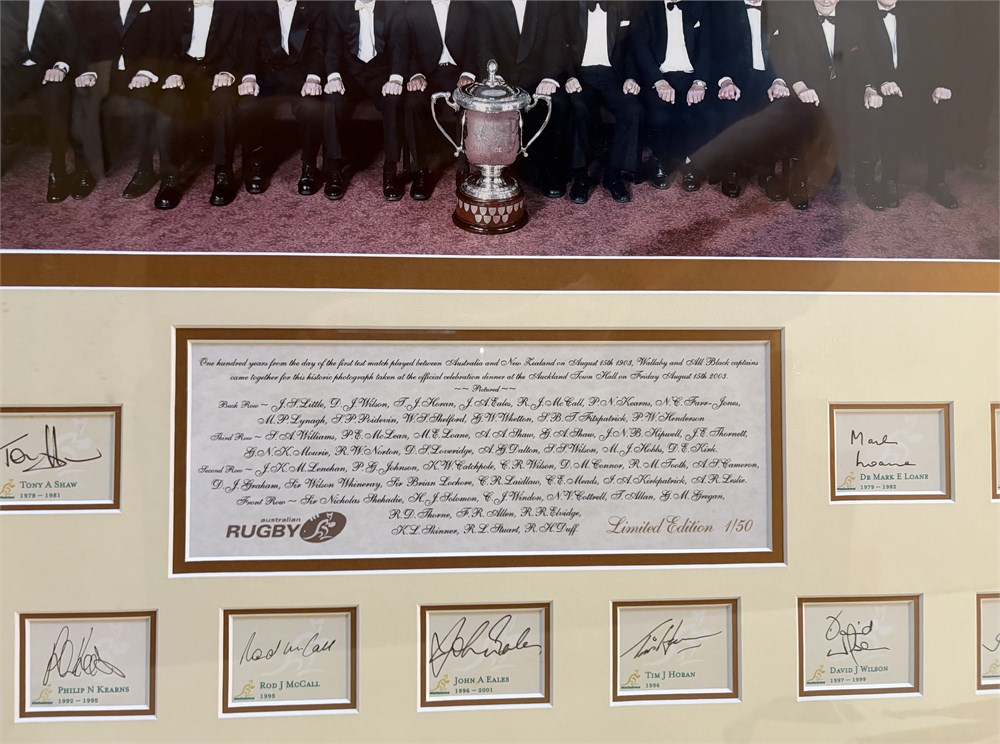 One hundred years from the day of the first test match played between Australia and New Zealand on August 15th 1903, Wallaby and All Black captains
came together for this historic photograph taken at the official celebration dinner at the Auckland Town Hall on Friday August 15th 2003.
~~ Pictured ~~
Back Row ~ J.S.Little, D.J.Wilson, T.J.Horan, J.A.Eales, R.J.McCall, P.N.Kearns, N.C.Farr-Jones,
M.P.Lynagh, S.P.Poidevin, W.S.Shelford, G.W.Whetton, S.B.T.Fitzpatrick, P.W.Henderson
Third Row ~ S.A.Williams, P.E.McLean, M.E.Loane, A.A.Shaw, G.A.Shaw, J.N.B.Hipwell, J.E.Thornett,
G.N.K.Mourie, R.W.Norton, D.S.Loveridge, A.G.Dalton, S.S.Wilson, M.J.Hobbs, D.E.Kirk.
Second Row ~ J.K.M.Lenehan, P.G.Johnson, K.W.Catchpole, C.R.Wilson, D.M.Connor, R.M.Tooth, A.S.Cameron,
D.J.Graham, Sir Wilson Whineray, Sir Brian Lochore, C.R.Laidlaw, C.E.Meads, I.A.Kirkpatrick, A.R.Leslie.
Front Row ~ Sir Nicholas Shehadie, K.J.Solomon, C.J.Windon, N.V.Cottrell, T.Allan, G.M.Gregan,
R.D.Thorne, F.R.Allen, R.R.Elvidge,
K.L.Skinner, R.L.Stuart, R.H.Duff.
australian
RUGBY
Limited Edition 1/50
TONY A SHAW
1978 – 1981
Mark
Loane
DR MARK E LOANE
1979 – 1982
PHILIP N KEARNS
1992 – 1995
Rod McCall
ROD J MCCALL
1995
John Eales
JOHN A EALES
1996 – 2001
TIM J HORAN
1996
David
DAVID J WILSON
1997 – 1999